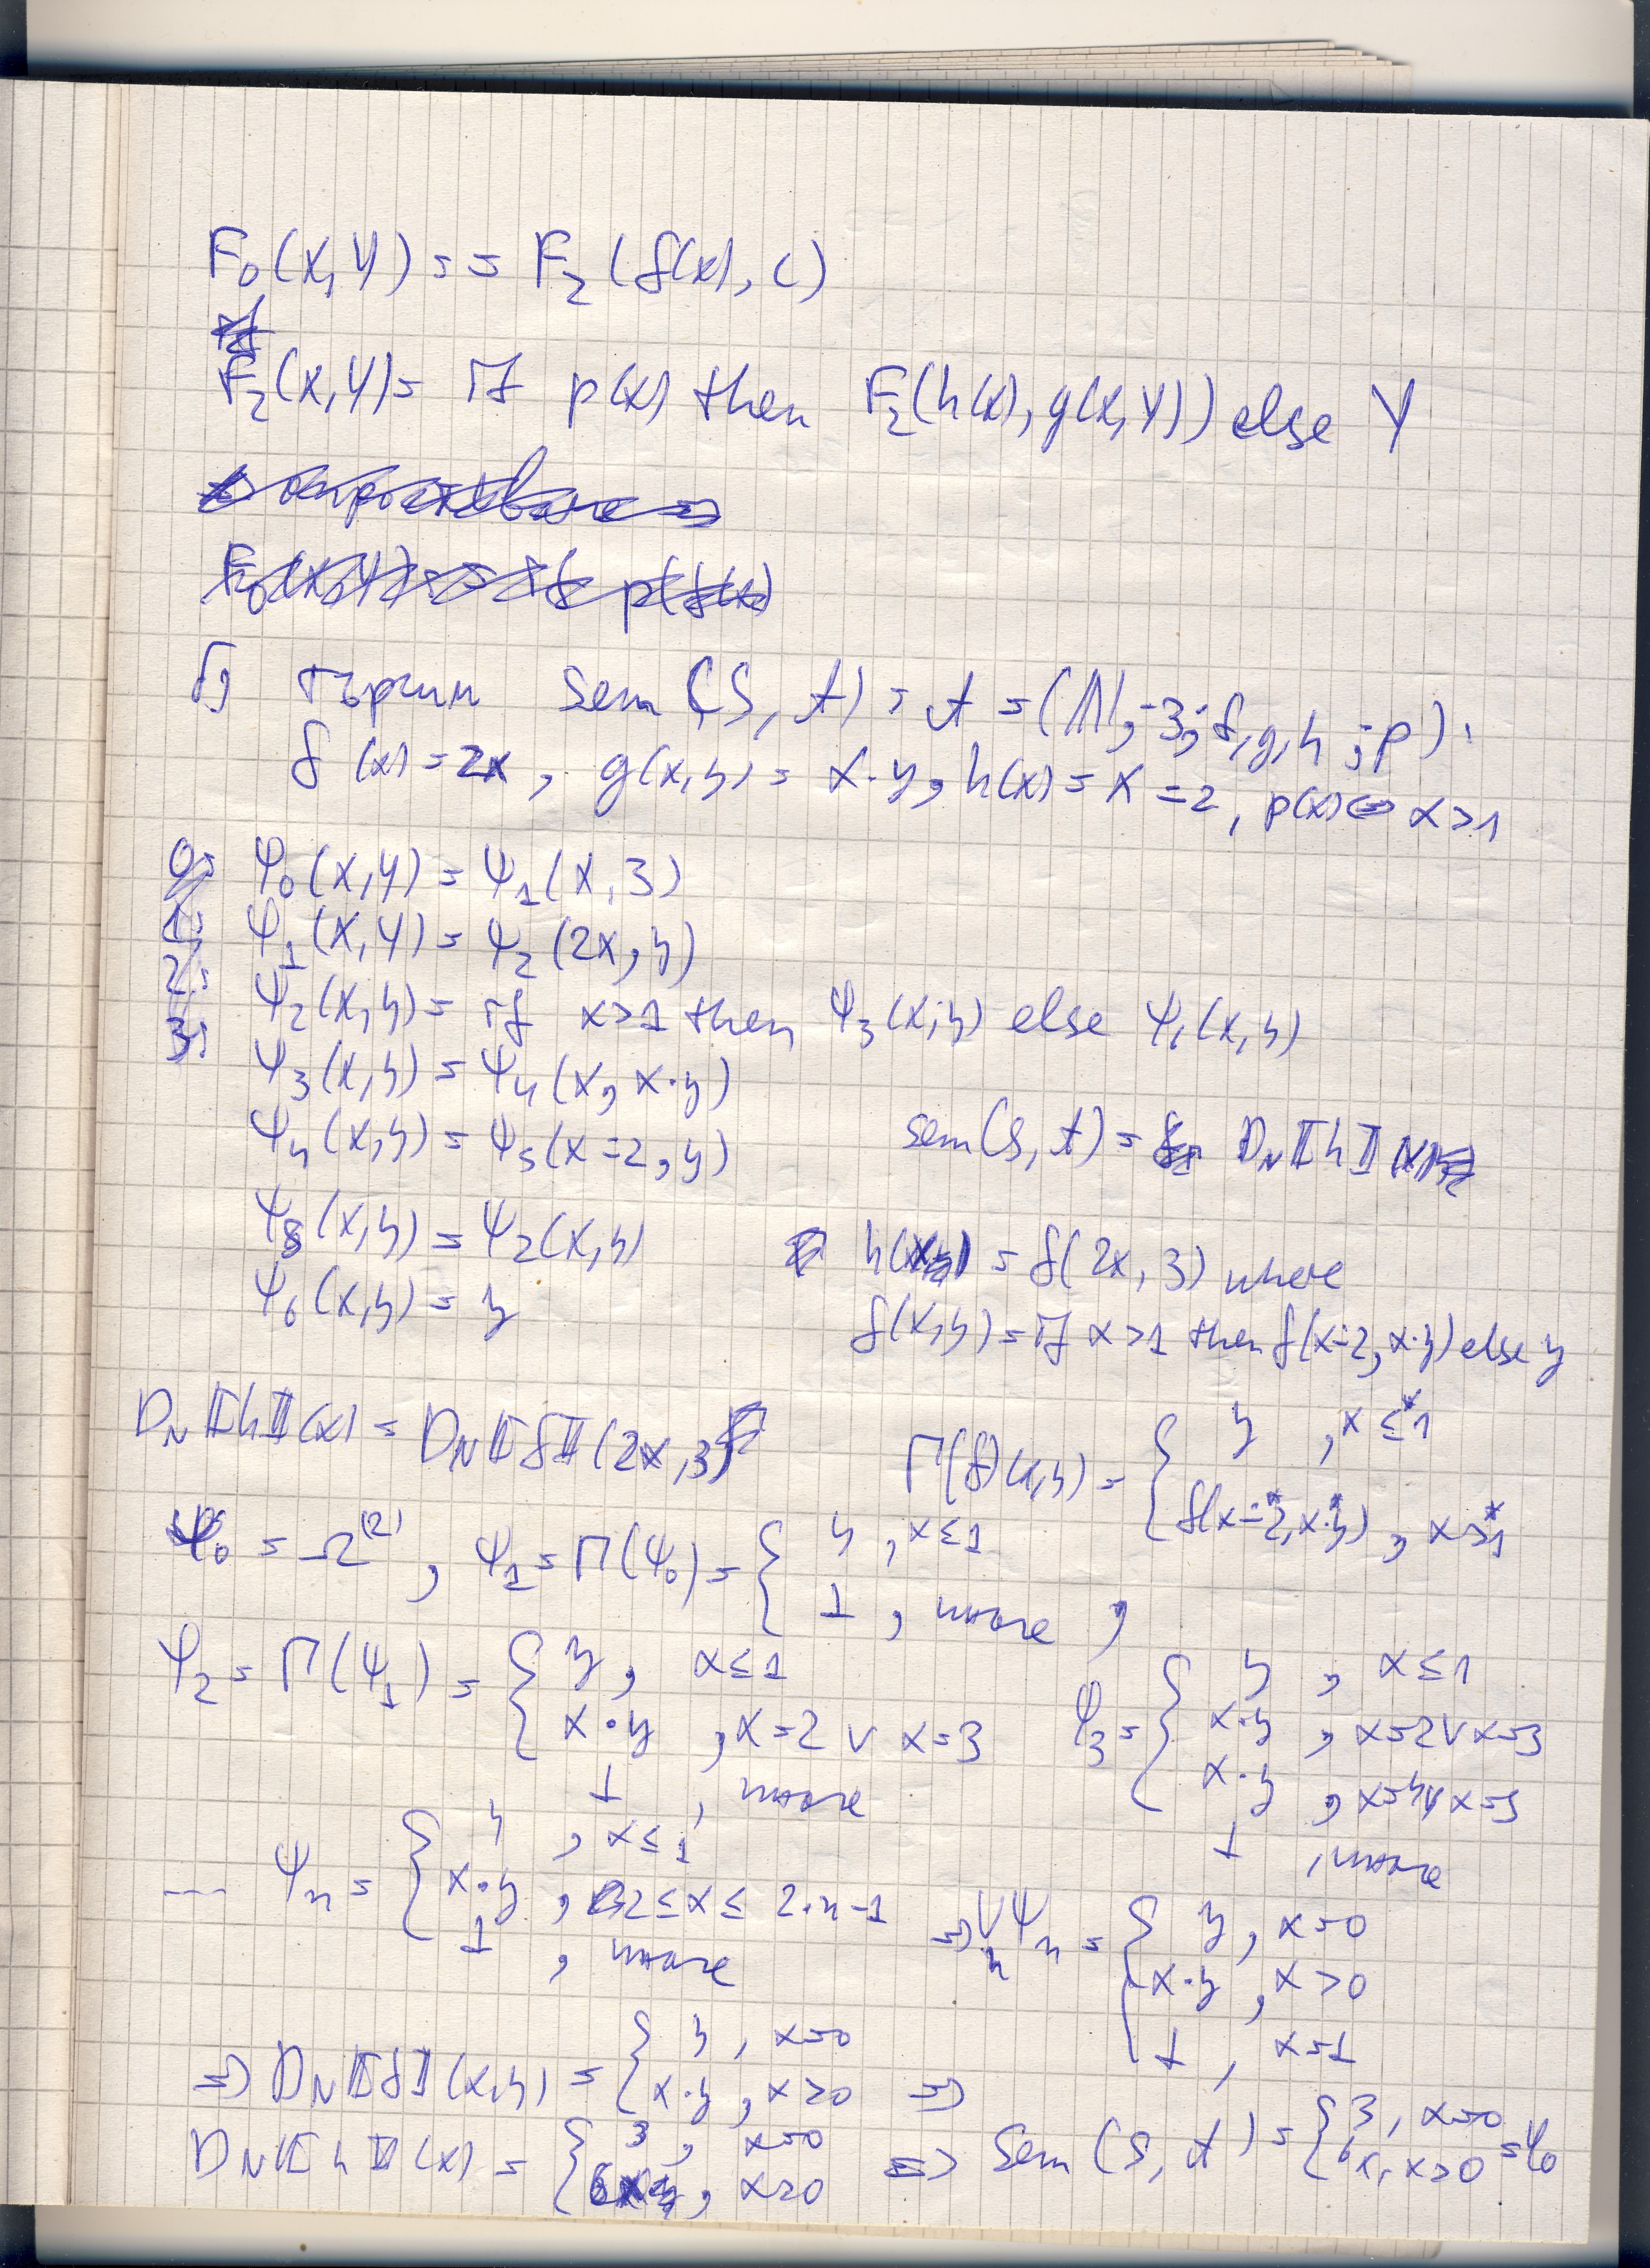 F₀(X,Y) == F₂(f(x), c)
F₂(X,Y) = if p(x) then F₂(h(x), g(x,Y)) else Y
б) търсим Sem(S, t), t = (ℕ; 3; f,g,h; p):
f(x) = 2x, g(x,y) = x·y, h(x) = x ∸ 2, p(x) ⇔ x > 1
0: Ψ₀(x,y) = Ψ₁(x, 3)
1: Ψ₁(x,y) = Ψ₂(2x, y)
2: Ψ₂(x,y) = if x>1 then Ψ₃(x,y) else Ψ₆(x,y)
3: Ψ₃(x,y) = Ψ₄(x, x·y)
Ψ₄(x,y) = Ψ₅(x∸2, y)
sem(S, t) = D_N⟦h⟧
Ψ₅(x,y) = Ψ₂(x,y)
h(x) = f(2x, 3) where
Ψ₆(x,y) = y
f(x,y) = if x>1 then f(x∸2, x·y) else y
D_N⟦h⟧(x) = D_N⟦f⟧(2x, 3)
Γ(f)(x,y) = { y, x ≤* 1
f(x∸*2, x·*y), x >* 1
Ψ₀ = Ω⁽²⁾, Ψ₁ = Γ(Ψ₀) = { y, x ≤ 1
⊥, иначе,
Ψ₂ = Γ(Ψ₁) = { y, x ≤ 1
x·y, x=2 ∨ x=3
⊥, иначе
Ψ₃ = { y, x ≤ 1
x·y, x=2 ∨ x=3
x·y, x=4 ∨ x=5
⊥, иначе
--- Ψₙ = { y, x ≤ 1
x·y, 2 ≤ x ≤ 2·n-1
⊥, иначе
⇒ ⋁ₙ Ψₙ = { y, x=0
x·y, x>0
⊥, x=⊥
⇒ D_N⟦f⟧(x,y) = { y, x=0
x·y, x>0 ⇒
D_N⟦h⟧(x) = { 3, x=0
6x, x>0
⇒ Sem(S, t) = { 3, x=0
6x, x>0 = Ψ₀